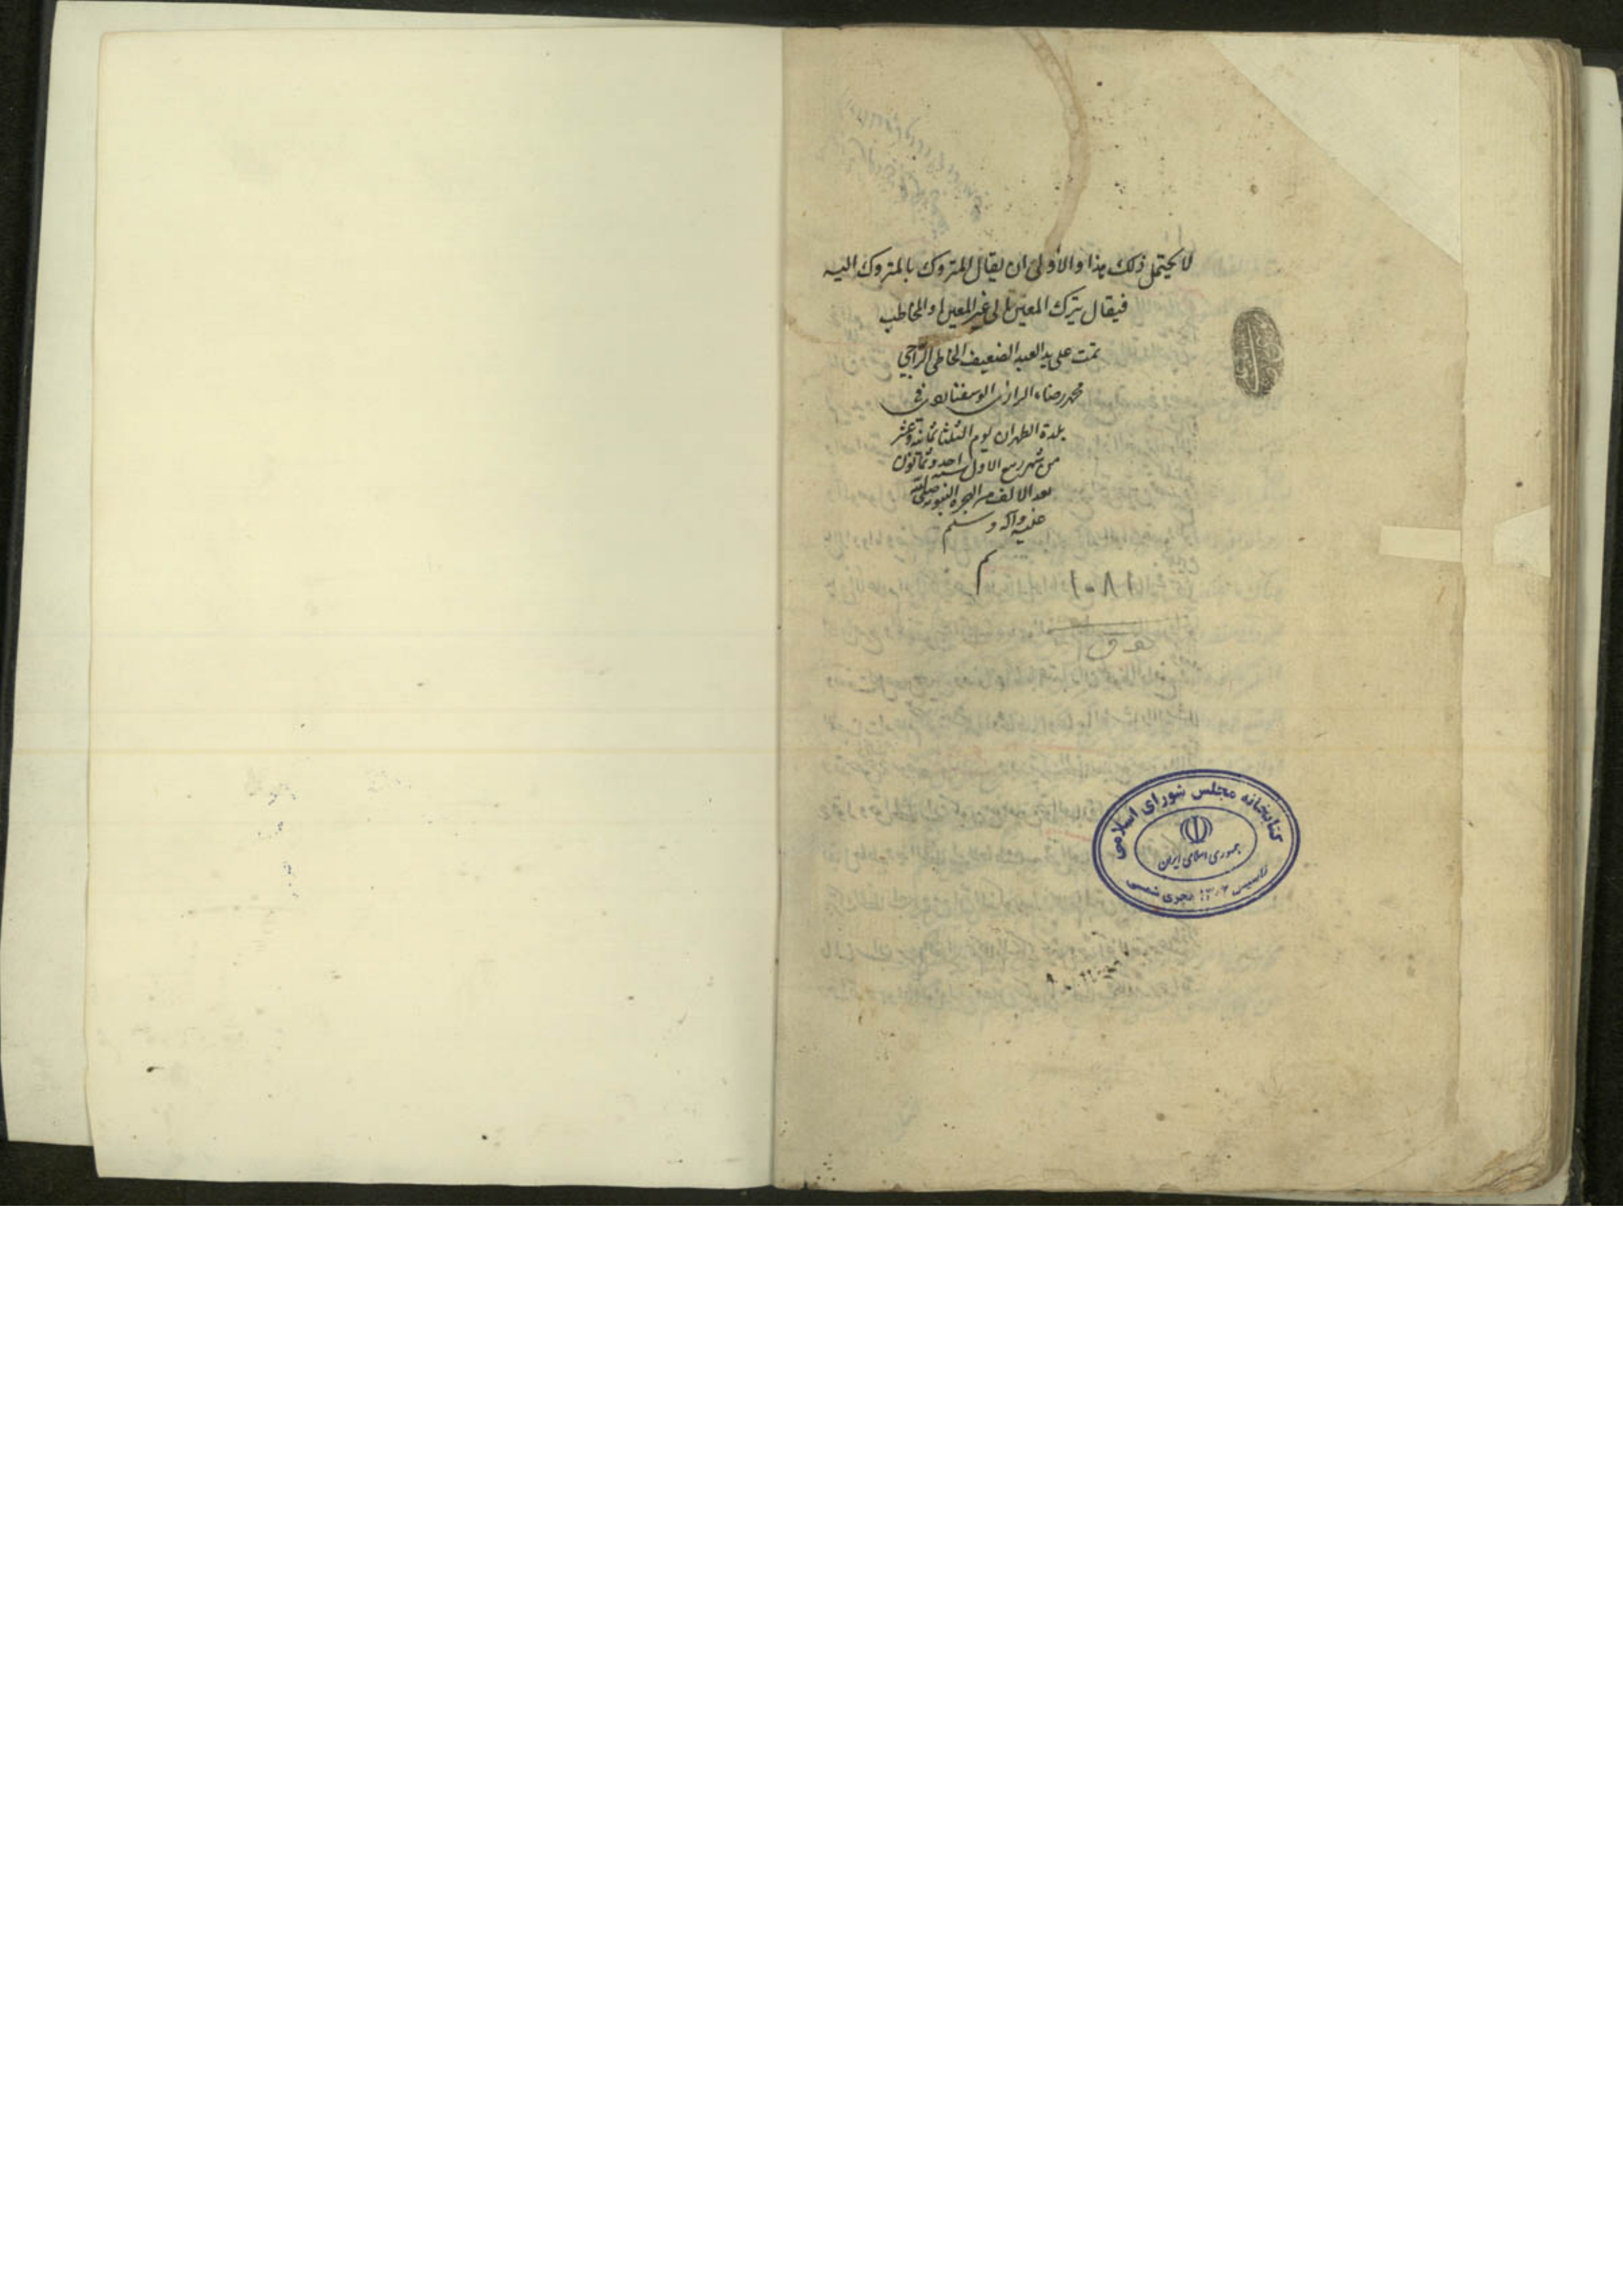 لا يحتمل ذلك هذا والأولى ان يقال المتروك بالمتروك اليه
فيقال يترك المعين الى غير المعين او المخاطب
تمت على يد العبد الضعيف الخاطى الراجى
محمد رضاء الرازى في
بلدة الطهران يوم الثلثا ثمانية وعشر
من شهر ربيع الاول سنه احد وثمانون
بعد الالف من الهجرة النبويه صلى الله
عليه وآله وسلم
م
۱۰۸۱
كتابخانه مجلس شوراى اسلامى
جمهورى اسلامى ايران
تاسيس ۱۳۰۲ هجرى شمسى